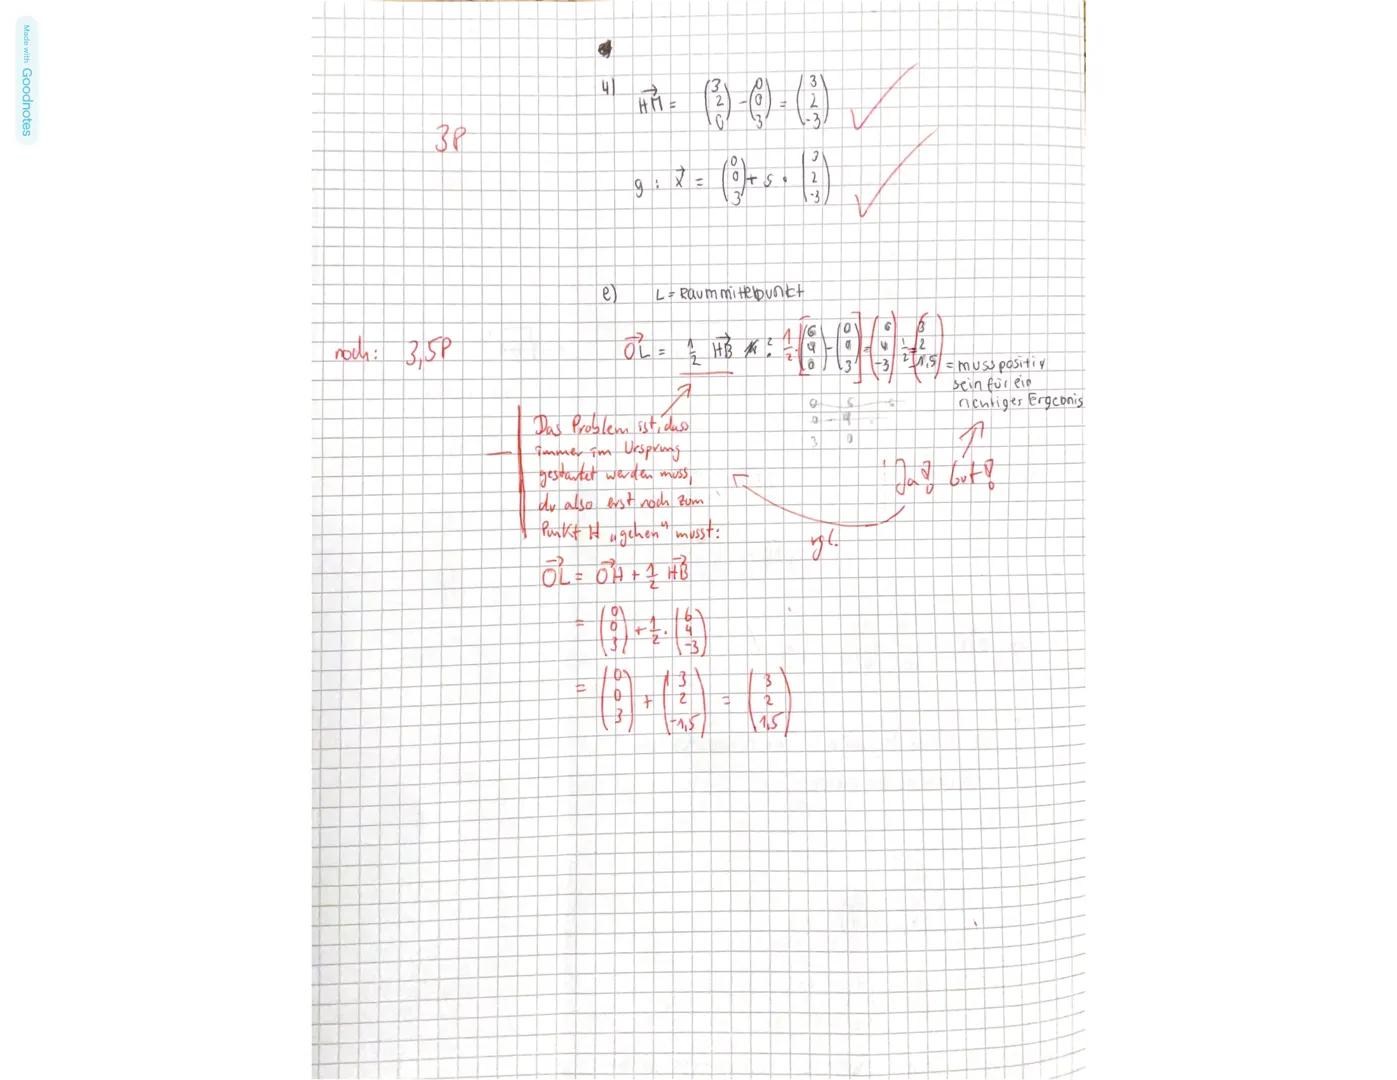 Made with Goodnotes
4)
HM = (3 2 0) - (0 0 3) = (3 2 -3)
3P
g : x = (0 0 3) + s · (3 2 -3)
e) L = Raummittelpunkt
noch: 3,5P
OL = 1/2 HB ? : 1/2 [(6 4 0) - (0 0 3)] = (6 4 -3) 1/2 = (3 2 -1,5)
= muss positiv
sein für ein
richtiges Ergebnis
0 6 6
0 - 4
3 0
Das Problem ist, dass
immer im Ursprung
gestartet werden muss,
du also erst noch zum
Punkt H „gehen“ musst:
! Ja! Gut!
vgl.
OL = OH + 1/2 HB
= (0 0 3) + 1/2 · (6 4 -3)
= (0 0 3) + (3 2 -1,5) = (3 2 1,5)